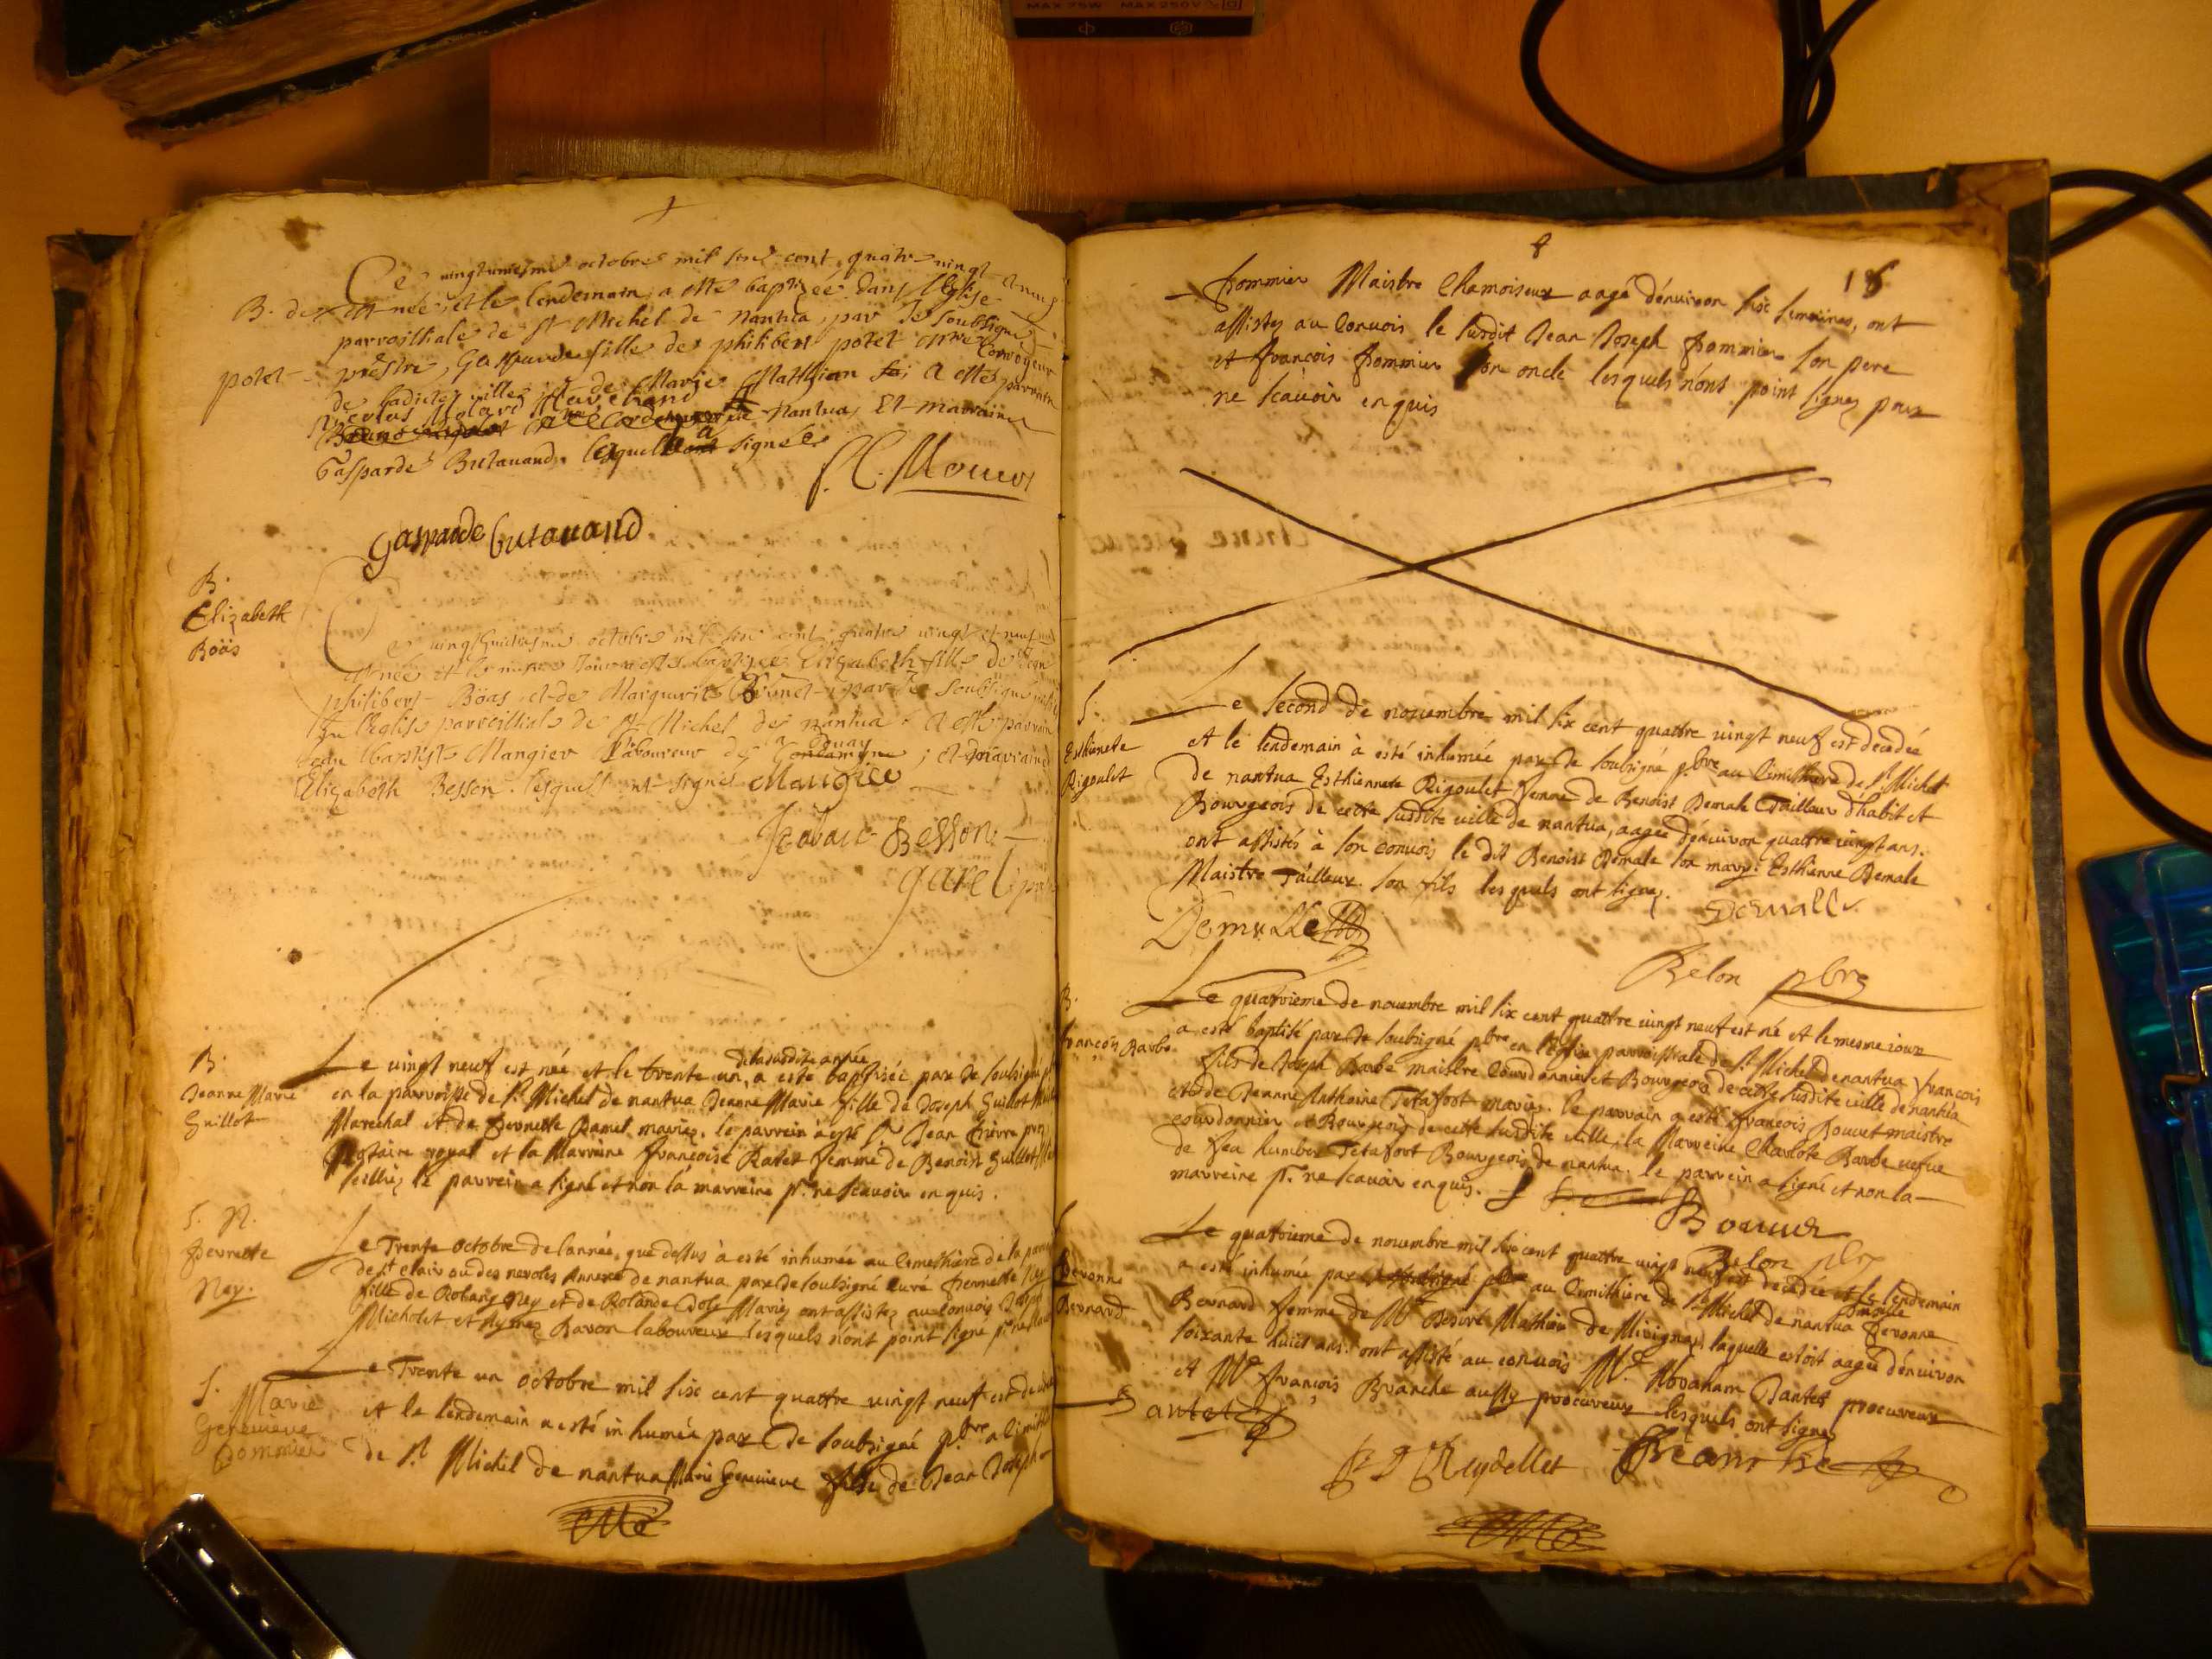 Ce vingtuniesme octobre mil six cent quatre vingt et neuf
B. de est née, et le lendemain a esté baptizée dans l'Eglise
parroissiale de St Michel de nantua, par Je soubsigné
potet prestre, Gasparde fille de philibert potet
de ladite ville, et de Marie Mathian a esté parrain
nantua, Et marraine
Gasparde Butauand, signée
Gasparde butauand
B.
Elizabeth
Böas
Ce vingthuictiesme octobre mil six cent quatre vingt et neuf
est née et le mesme Jour a esté baptizee Elizabeth fille de
philibert Böas et de Marguerite Brunet par Je soubsigné
En l'eglise parroissiale de St Michel de nantua. a esté parrain
Jean Baptiste Mangier laboureur de ; et marraine
Elizabeth Besson. lesquels ont signé Maugier
Besson
garel
B.
Jeanne Marie
Guillot
de la susdite année
Le vingt neuf est née et le trente un, a esté baptisée par Je soubsigné
en la parroisse de St Michel de nantua Jeanne Marie fille de Joseph Guillot
Marechal et de Pernette Ramel mariez. le parrein a esté Sr Jean
Notaire royal et la Marreine françoise Ratet femme de Benoist Guillot
le parrein a signé et non la marreine pr. ne scavoir enquis.
S. N.
Pernette
Ney.
Le Trente octobre de l'année que dessus à esté inhumée au Cimethiere de la
de St clair ou des neroles Annexe de nantua par Je soubsigné curé Pernette Ney
fille de Ney et de Rolande Mariez ont assistez au convois
Micholet et Ravon laboureur lesquels n'ont point signé
S.
Marie
Geneuieve
Pommier
Le Trente un octobre mil six cent quattre vingt neuf est
et le lendemain a esté inhumée par Je soubsigné pbre
de St Michel de nantua Marie Geneuieve fille de Jean Joseph
18
Pommier Maistre Chamoiseur aagé d'enuiron six semaines, ont
assistez au Conuois le susdit Jean Joseph Pommier son pere
et François Pommier son oncle lesquels n'ont point signez pour
ne scauoir enquis
S.
Esthienete
Rigoulet
Le second de nouembre mil six cent quattre vingt neuf est decedée
et le lendemain à esté inhumée par Je soubsigné pbre au Cimithiere de St Michel
de nantua Esthiennete Rigoulet femme de Benoist Demale Tailleur d'habit et
Bourgeois de cette susdite ville de nantua, aagée d'enuiron quattre vingt ans.
ont assistés à son conuois le dit Benoist Demale son mary. Esthienne Demale
Maistre Tailleur son fils lesquels ont signez.
Demalle
Belon pbre
B.
François Barbe
Le quatrieme de nouembre mil six cent quattre vingt neuf est né et le mesme iour
a esté baptisé par Je soubsigné pbre en l'Eglise parroissiale de St Michel de nantua François
fils de Joseph Barbe maistre Courdonnier et Bourgeois de cette susdite ville de nantua
et de Jeanne Anthoine Tetafort mariez. le parrain a esté François Bouuet maistre
courdonnier et Bourgeois de cette susdite ville, la Marreine Charlote Barbe vefue
de feu humbert Tetafort Bourgeois de nantua. le parrein a signé et non la
marreine pr. ne scauoir enquis.
Bouuer
Belon pbre
Peronne
Bernard
Le quatrieme de nouembre mil six cent quattre vingt neuf est decedée et le lendemain
a esté inhumée par au Cimithiere de St Michel de nantua Peronne
Bernard femme de Mr Desiré Mathieu de Mirignay, laquelle estoit aagée d'enuiron
soixante huict ans. ont assisté au conuois Mr. Abraham Jantet procureur
et Mr François Branche aussy procureur lesquels ont signez
Jantet
Reydellet
Branche